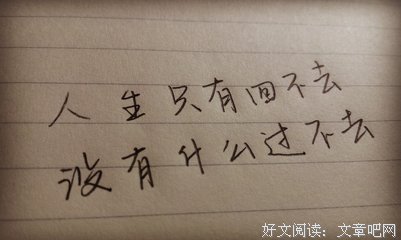 人生只有回不去
没有什么过不去
好文阅读：文章吧网